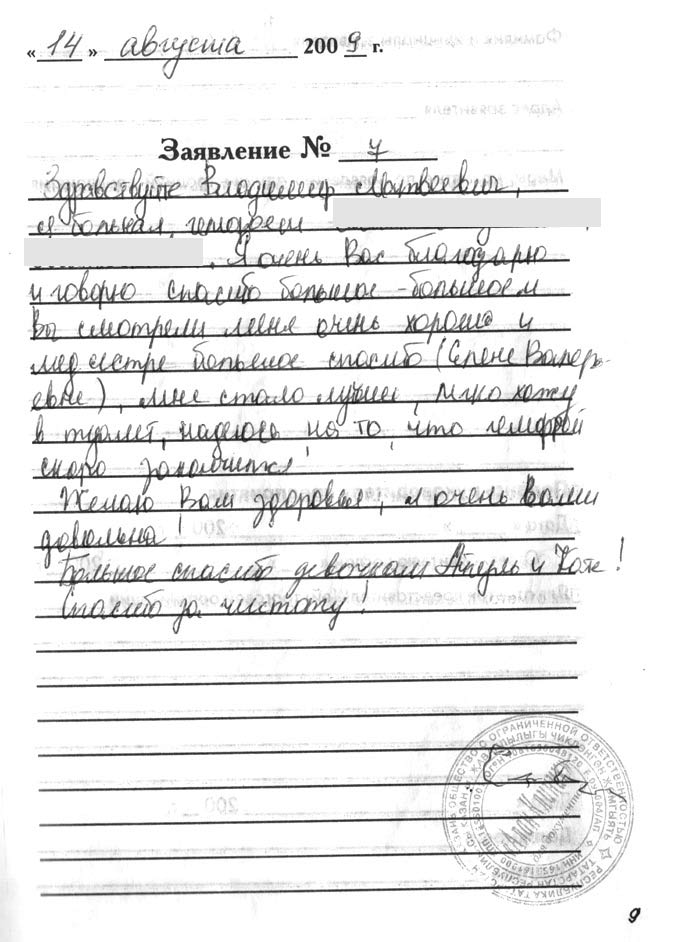 « 14 » августа 2009 г.
Заявление № 7
Здравствуйте Владимир Матвеевич,
я больная,
. Я очень Вас благодарю
и говорю спасибо большое - большое
Вы смотрели меня очень хорошо и
мед сестре большое спасибо (Елене Валерь-
евне), мне стало лучше, легко хожу
в туалет, надеюсь на то, что геморрой
скоро закончится!
Желаю Вам здоровья, я очень Вами
довольна!
Большое спасибо девочкам и Кате!
Спасибо за чистоту!
ОБЩЕСТВО С ОГРАНИЧЕННОЙ ОТВЕТСТВЕННОСТЬЮ
РЕСПУБЛИКА ТАТАРСТАН
9